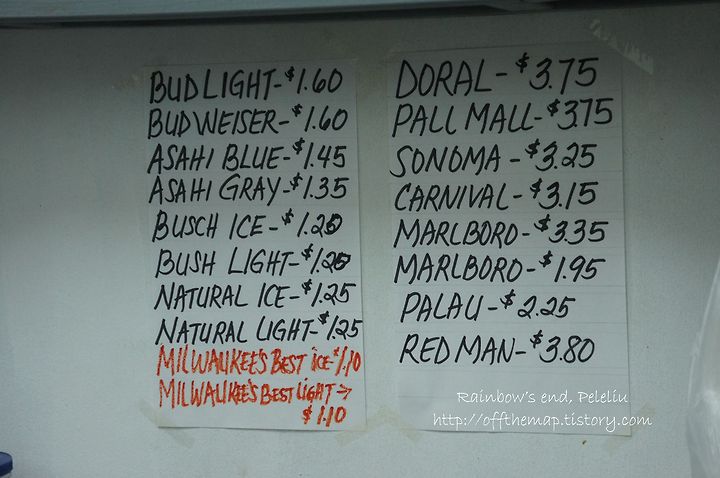 BUD LIGHT-$1.60
BUDWEISER-$1.60
ASAHI BLUE-$1.45
ASAHI GRAY-$1.35
BUSCH ICE-$1.20
BUSH LIGHT-$1.20
NATURAL ICE-$1.25
NATURAL LIGHT-$1.25
MILWAUKEE'S BEST ICE-$1.10
MILWAUKEE'S BEST LIGHT→
$1.10
DORAL-$3.75
PALL MALL-$3.75
SONOMA-$3.25
CARNIVAL-$3.15
MARLBORO-$3.35
MARLBORO-$1.95
PALAU-$2.25
RED MAN-$3.80
Rainbow's end, Peleliu
http://offthemap.tistory.com